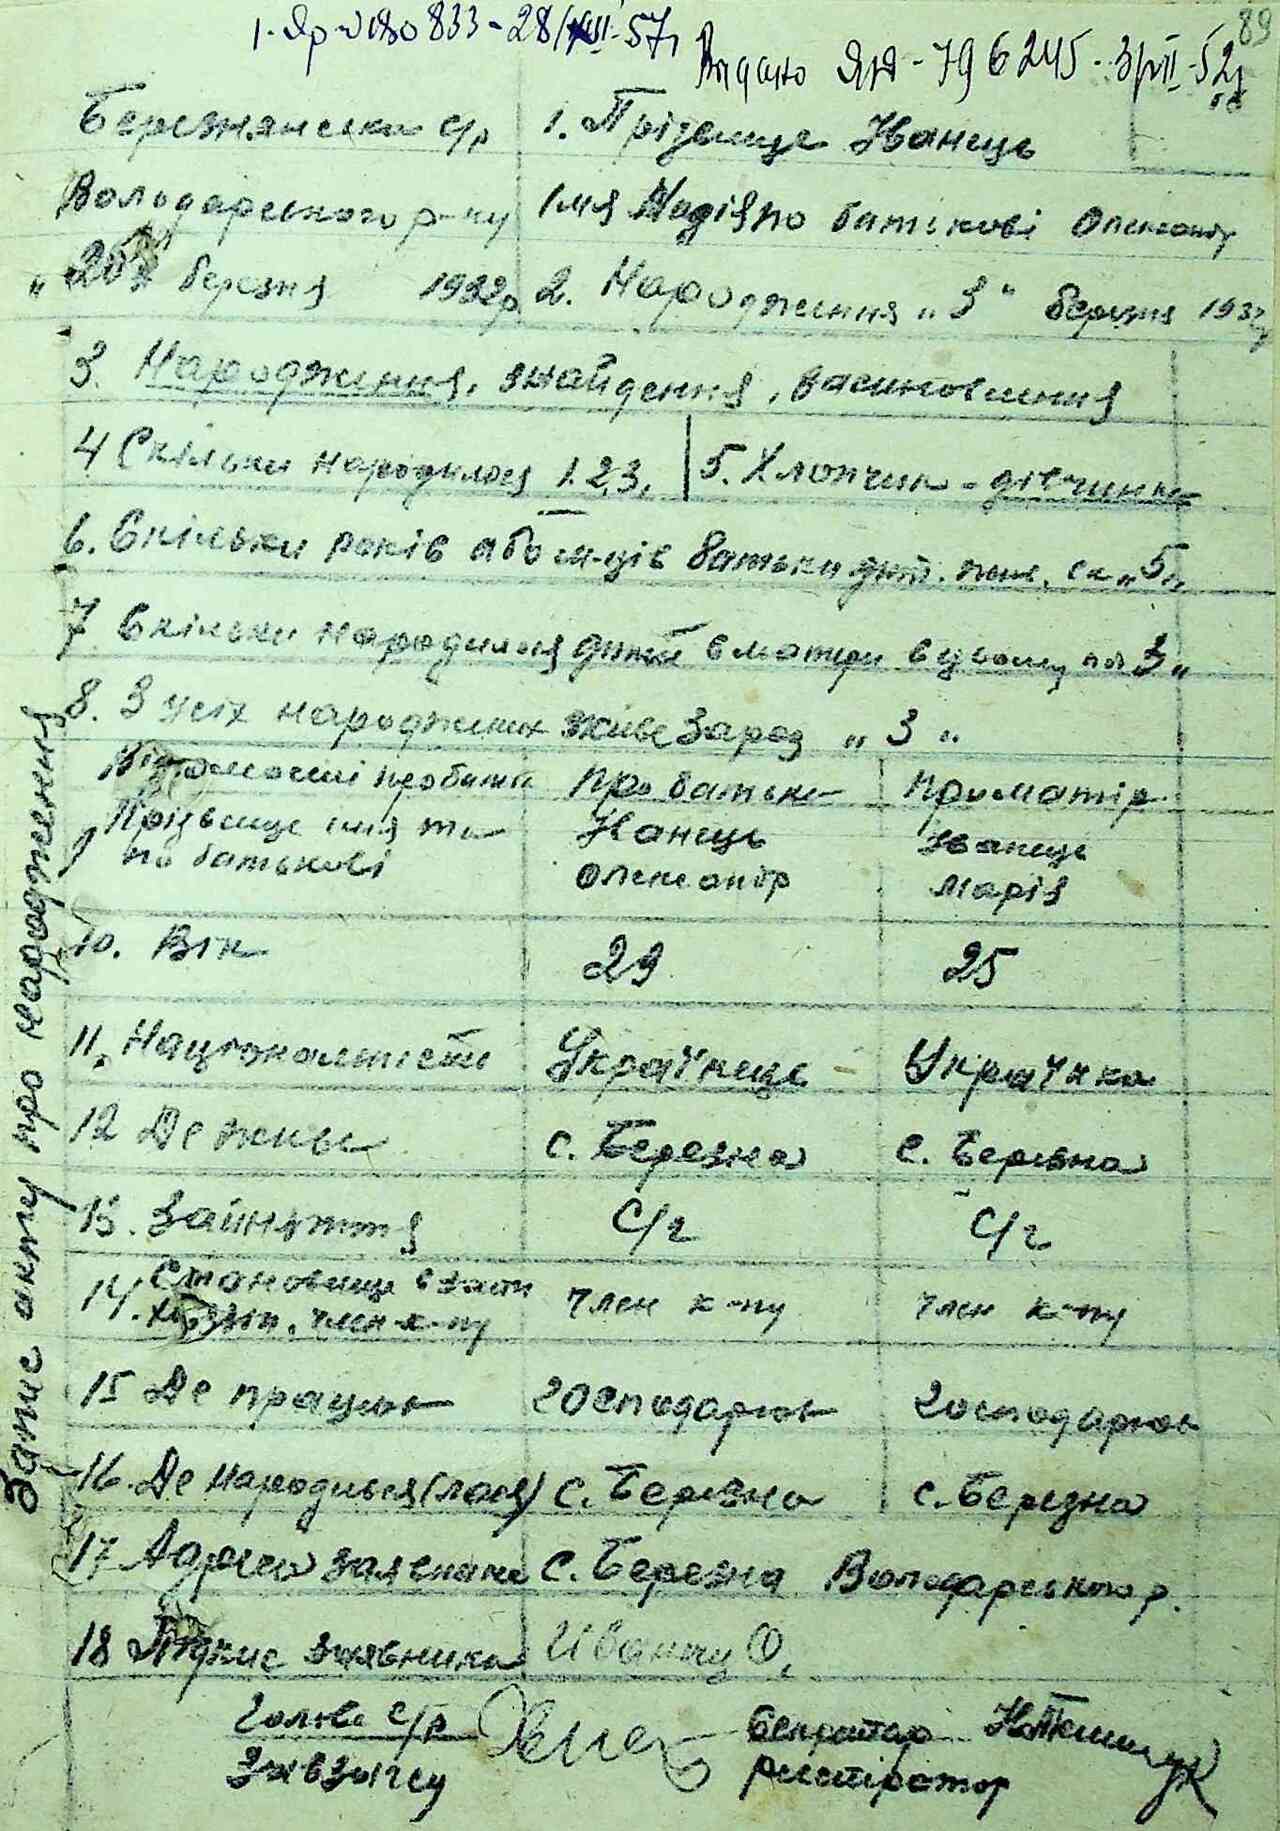 833-28/VIII-57
Видано ЯЯ-796245-3/VII-52
89
Березнянська с/р 1. Прізвище Іванець
Володарського р-ну Імя Надія по батькові Олександр
"26" березня 1932р 2. Народження "3" березня 1932
3. Народження, знайдення, васиновлення
4 Скільки народилося 1.2,3. 5. Хлопчик - дівчинка
6. Скільки років або м-ців батьки "5"
7 Скільки народилося дітей в матери в цьому "3"
8. З усіх народжених живе зараз "3"
Відомости про батьків Про батька Про матір
9 Прізвище імя та по батькові Іванець Олександр Іванець Марія
10. Вік 29 25
11. Національність Українець Українка
12 Де живе с. Березна с. Березна
13. Заняття С/г С/г
14. Становище в занят. член к-пу член к-пу член к-пу
15 Де працює господарює господарює
16. Де народився (лася) с. Березна с. Березна
17 Адреса заявника с. Березна Володарського р.
18 Підпис заявника Иванец О.
Голова с/р Секретар
Завзагсу реєстратор
Запис акту про народження